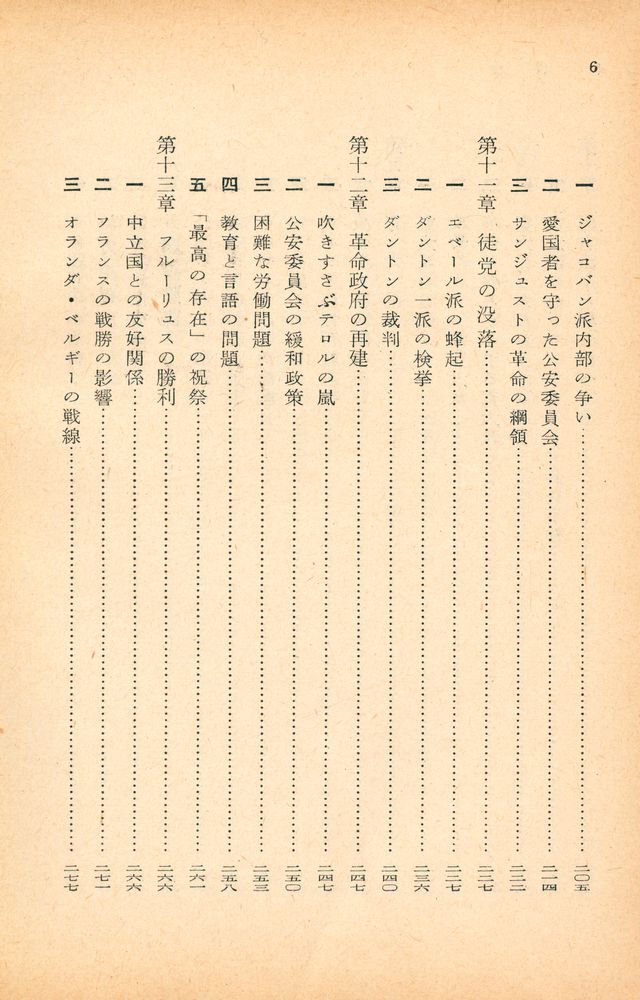 6
一 ジャコバン派内部の争い……二〇五
二 愛国者を守った公安委員会……二一四
三 サンジュストの革命の綱領……二二二
第十一章 徒党の没落……二二七
一 エベール派の蜂起……二二七
二 ダントン一派の検挙……二三六
三 ダントンの裁判……二四〇
第十二章 革命政府の再建……二四七
一 吹きすさぶテロルの嵐……二四七
二 公安委員会の緩和政策……二五〇
三 困難な労働問題……二五三
四 教育と言語の問題……二五八
五 「最高の存在」の祝祭……二六一
第十三章 フルーリュスの勝利……二六六
一 中立国との友好関係……二六六
二 フランスの戦勝の影響……二七一
三 オランダ・ベルギーの戦線……二七七